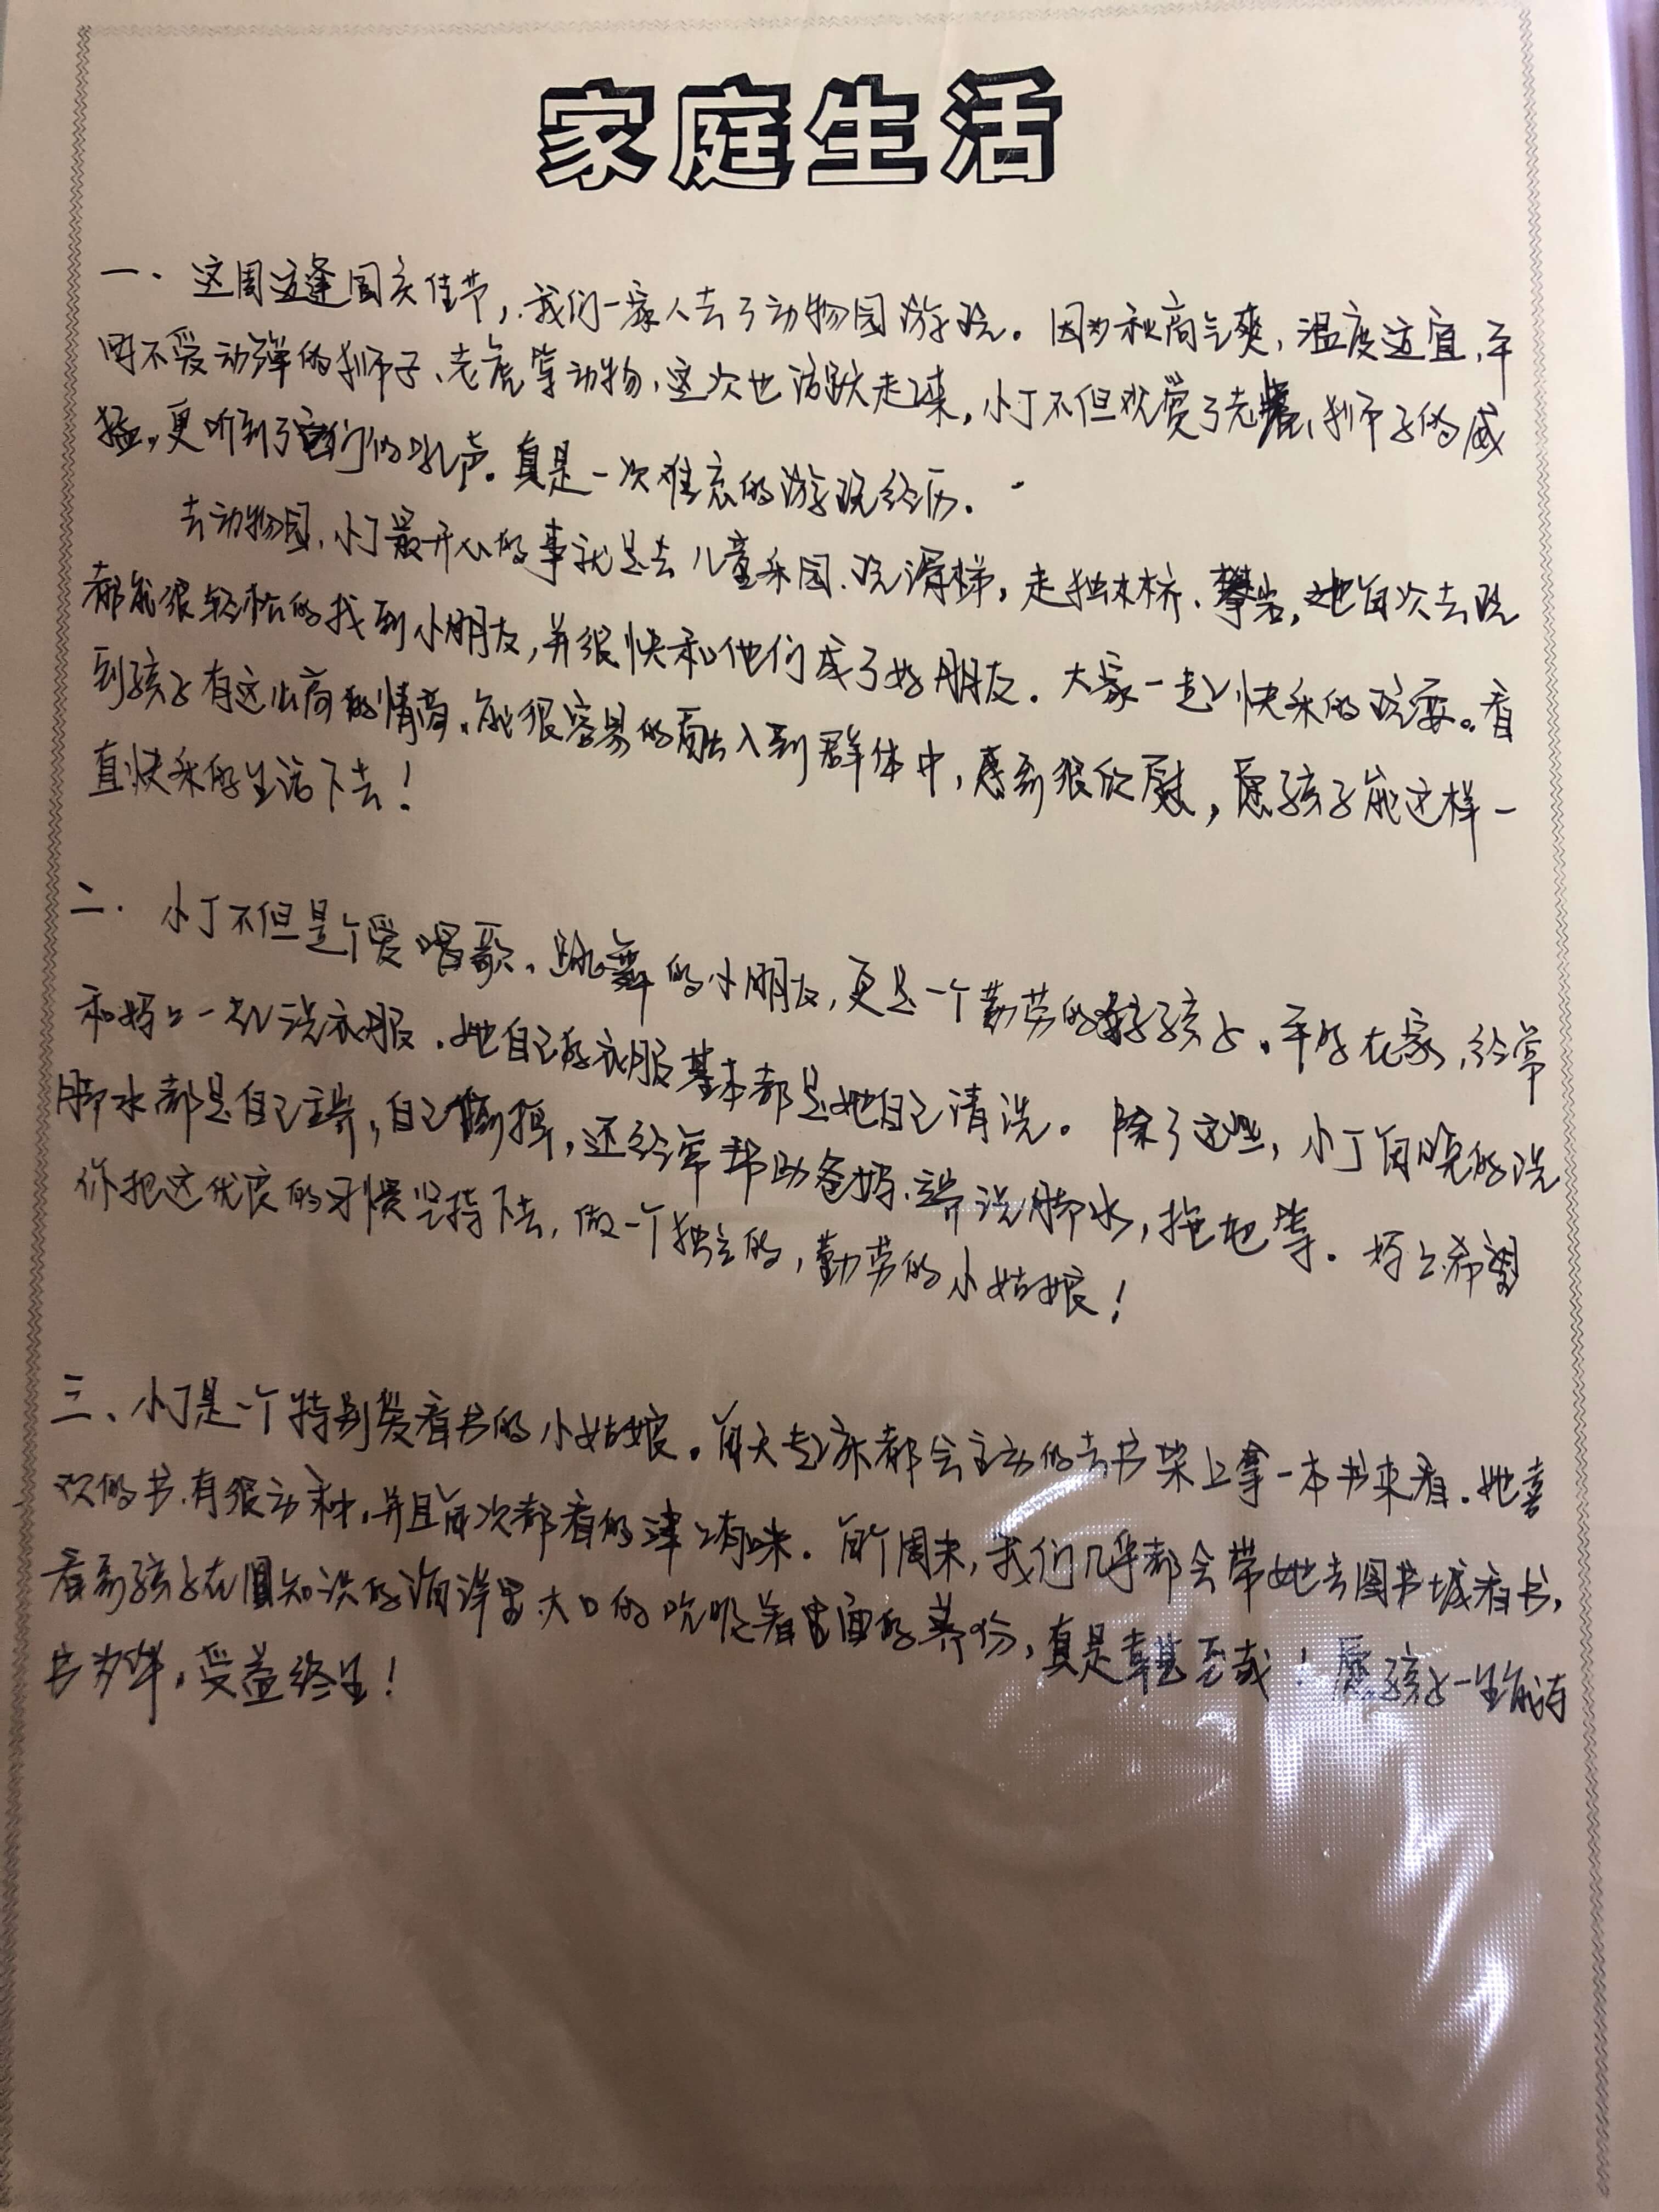 家庭生活
一. 这周适逢国庆佳节,我们一家人去了动物园游玩。因为秋高气爽,温度适宜,平
时不爱动弹的狮子、老虎等动物,这次也活跃起来,小丁不但欣赏了老虎、狮子的威
猛,更听到了它们的吼声。真是一次难忘的游玩经历.
去动物园,小丁最开心的事就是去儿童乐园、玩滑梯,走独木桥、攀岩,她每次去玩
都能很轻松的找到小朋友,并很快和他们成了好朋友.大家一起快乐的玩耍。看
到孩子有这么高的情商,能很容易的融入到群体中,感到很欣慰,愿孩子能这样一
直快乐的生活下去!
二. 小丁不但是个爱唱歌、跳舞的小朋友,更是一个勤劳的好孩子.平时在家,经常
和妈妈一起洗衣服.她自己的衣服基本都是她自己清洗。除了这些,小丁每晚的洗
脚水都是自己端,自己倒掉,还经常帮助爸妈、端洗脚水,拖地等.妈妈希望
你把这优良的习惯坚持下去,做一个独立的,勤劳的小姑娘!
三、小丁是一个特别爱看书的小姑娘。每天起床都会主动的去书架上拿一本书来看.她喜
欢的书,有很多种,并且每次都看的津津有味.每个周末,我们几乎都会带她去图书城看书,
看到孩子在知识的海洋里大口的吮吸着里面的养份,真是幸甚至哉!愿孩子一生能诗
书为伴,受益终生!